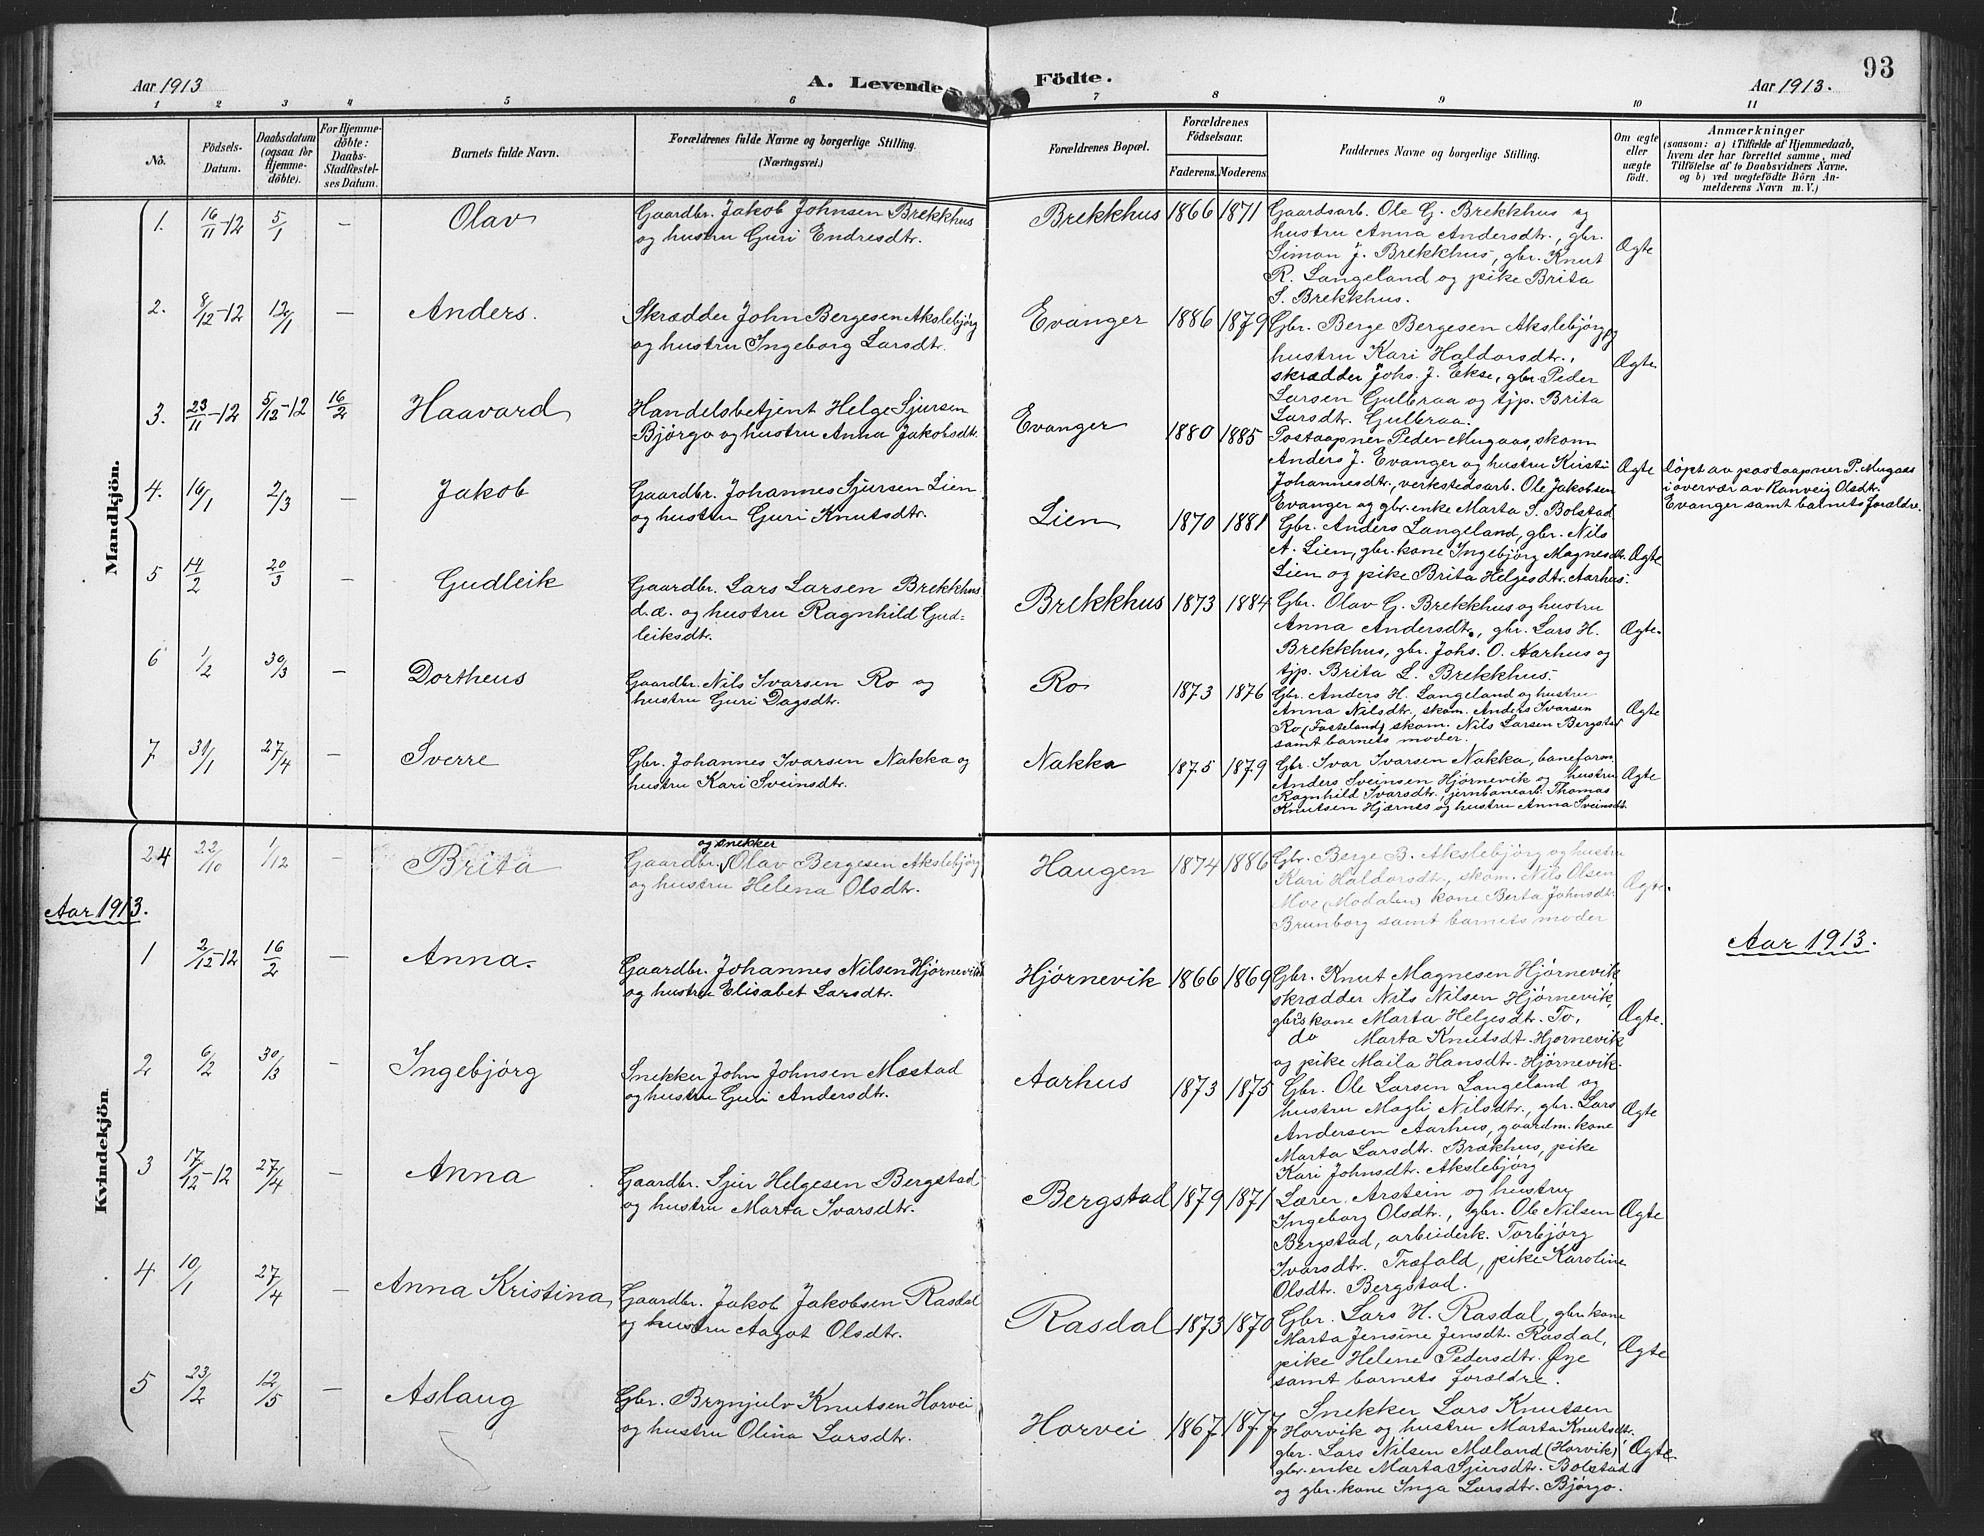 93
Aar 1913
A. Levende Födte.
Aar 1913.
1 2 3 4 5 6 7 8 9 10 11
No.
Födsels-
Datum.
Daabsdatum
(ogsaa for
Hjemme-
döbte).
For Hjemme-
döbte:
Daabs-
Stadfæstel-
ses Datum.
Barnets fulde Navn.
Forældrenes fulde Navne og borgerlige Stilling.
(Næringsvei.)
Forældrenes Bopæl.
Forældrenes
Födselsaar.
Faderens. Moderens.
Faddernes Navne og borgerlige Stilling.
Om ægte
eller
uægte
födt.
Anmærkninger
(saasom: a) i Tilfælde af Hjemmedaab,
hvem der har forrettet samme, med
Tilföielse af to Daabsvidners Navne.
og b) ved uægtefödte Börn An-
melderens Navn m. V.)
Mandkjön.
1. 16/11-12 5/1 — Olav
Gaardbr. Jakob Johnsen Brekkhus
og hustru Guri Endresdtr.
Brekkhus 1866 1871
Gaardsarb. Ole G. Brekkhus og
hustru Anna Andersdtr., gbr.
Simon J. Brekkhus, gbr. Knut
R. Langeland og pike Brita
S. Brekkhus.
Ægte
2. 8/12-12 12/1 — Anders.
Skrædder John Bergesen Akslebjørg
og hustru Ingeborg Larsdtr.
Evanger 1886 1879
Gbr. Berge Bergesen Akslebjørg og
hustru Kari Haldorsdtr.,
skrædder Johs. J. Ekse, gbr. Peder
Larsen Gulbraa og tjp. Brita
Larsdtr. Gulbraa.
Ægte
3. 23/11-12 5/12-12 16/2 Haavard
Handelsbetjent Helge Sjursen
Bjørgo og hustru Anna Jakobsdtr.
Evanger 1880 1885
Postaapner Peder Mugaas, skom.
Anders J. Evanger og hustru Kirsti
Johannesdtr., verkstedsarb. Ole Jakobsen
Evanger og gbr. enke Marta S. Bolstad
Ægte
Døpt av postaapner P. Mugaas
i overvær av Ranveig Olsdtr.
Evanger samt barnets forældre.
4. 16/1 2/3 — Jakob
Gaardbr. Johannes Sjursen Lien
og hustru Guri Knutsdtr.
Lien 1870 1881
Gbr. Anders Langeland, gbr. Nils
A. Lien, gbr. kone Ingebjørg Magnesdtr.
Lien og pike Brita Helgesdtr. Aarhus.
Ægte
5 14/2 20/3 — Gudleik
Gaardbr. Lars Larsen Brekkhus
d.æ. og hustru Ragnhild Gud-
leiksdtr.
Brekkhus 1873 1884
Gbr. Olav G. Brekkhus og hustru
Anna Andersdtr., gbr. Lars H.
Brekkhus, gbr. Johs. O. Aarhus og
tjp. Brita L. Brekkhus.
Ægte.
6 1/2 30/3 — Dortheus
Gaardbr. Nils Ivarsen Ro og
hustru Guri Dagsdtr.
Ro 1873 1876
Gbr. Anders H. Langeland og hustru
Anna Nilsdtr., skom. Anders Ivarsen
Ro (Fosteland), skom. Nils Larsen Bergstad
samt barnets moder.
Ægte
7 31/1 27/4 — Sverre
Gbr. Johannes Ivarsen Nakka og
hustru Kari Sveinsdtr.
Nakka 1875 1879
Gbr. Ivar Ivarsen Nakka, baneform.
Anders Sveinsen Hjørnevik og hustru
Ragnhild Ivarsdtr., jernbanearb. Thomas
Knutsen Hjærnes og hustru Anna Sveinsdtr.
Ægte
Kvindekjön
24 22/10 1/12 — Brita
og snekker
Gaardbr. Olav Bergesen Akslebjørg
og hustru Helena Olsdtr.
Haugen 1874 1886
Gbr. Berge B. Akslebjørg og hustru
Kari Haldorsdtr., skom. Nils Olsen
Moe (Modalen) kone Berta Johnsdtr.
Brunborg samt barnets moder
Ægte.
Aar 1913.
Aar 1913.
1 2/12-12 16/2 — Anna.
Gaardbr. Johannes Nilsen Hjørnevik
og hustru Elisabet Larsdtr.
Hjørnevik 1866 1869
Gbr. Knut Magnesen Hjørnevik,
skrædder Nils Nilsen Hjørnevik,
gbrs kone Marta Helgesdtr. To,
do Marta Knutsdt. Hjørnevik
og pike Maila Hansdtr. Hjørnevik.
Ægte.
2 6/2 30/3 — Ingebjørg
Snekker John Johnsen Mæstad
og hustru Guri Andersdtr.
Aarhus 1873 1875
Gbr. Ole Larsen Langeland og
hustru Magli Nilsdtr., gbr. Lars
Andersen Aarhus, gaardm. kone
Marta Larsdtr. Brækhus, pike
Kari Johnsdtr. Akslebjørg
Ægte
3 17/12-12 27/4 — Anna
Gaardbr. Sjur Helgesen Bergstad
og hustru Marta Ivarsdtr.
Bergstad 1879 1871
Lærer Arstein og hustru
Ingeborg Olsdtr., gbr. Ole Nilsen
Bergstad, arbeiderk. Torbjørg
Ivarsdtr. Træfald, pike Karoline
Olsdtr. Bergstad.
Ægte
4 10/1 27/4 — Anna Kristina
Gaardbr. Jakob Jakobsen Rasdal
og hustru Aagot Olsdtr.
Rasdal 1873 1870
Gbr. Lars H. Rasdal, gbr. kone
Marta Jensine Jensdtr. Rasdal,
pike Helene Pedersdtr. Øye
samt barnets forældre.
Ægte
5 23/12 12/5 — Aslaug
Gbr. Brynjulv Knutsen Horvei
og hustru Olina Larsdtr.
Horvei 1867 1877
Snekker Lars Knutsen
Horvik og hustru Marta Knutsdtr.
gbr. Lars Nilsen Mæland (Horvik),
gbr. enke Marta Sjursdtr. Bolstad
og gbr. kone Inga Larsdtr. Bjørgo.
Ægte